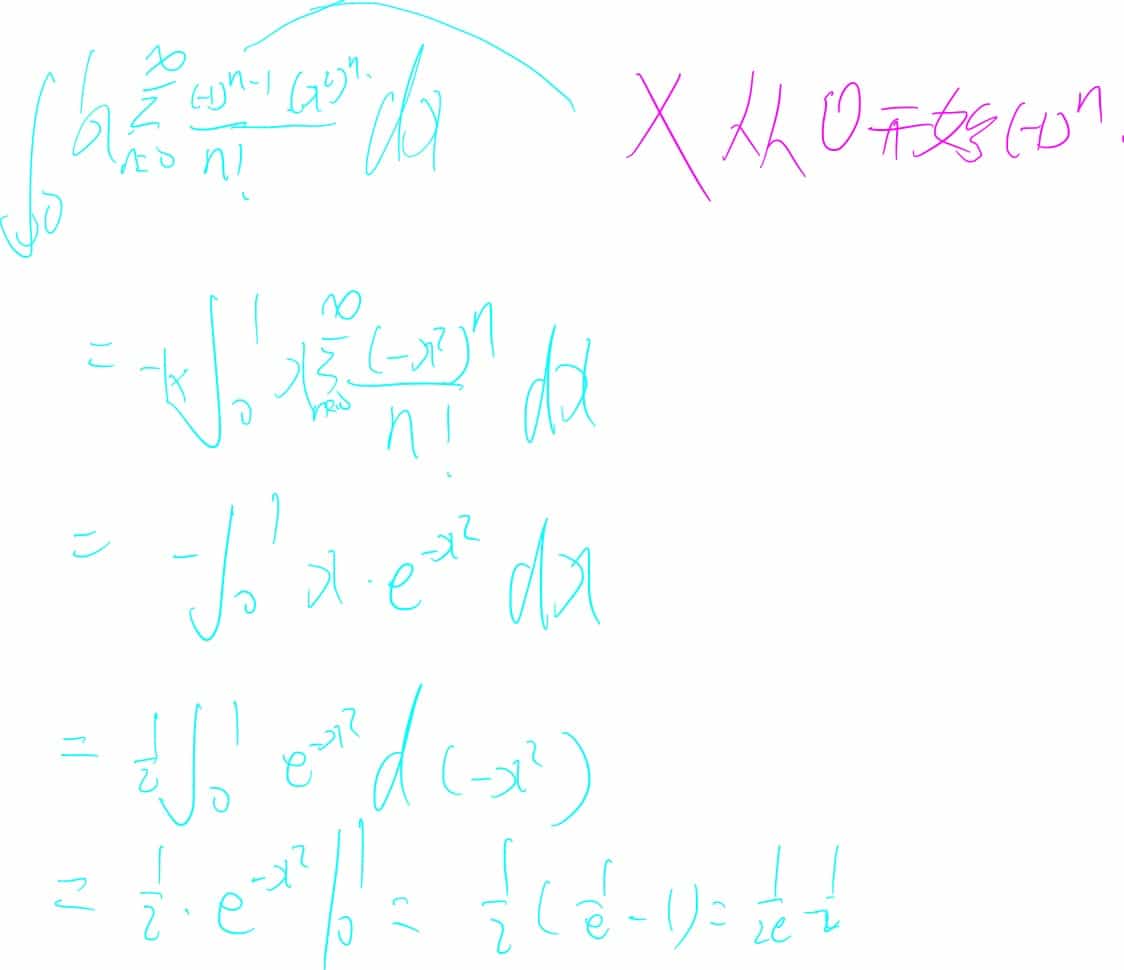 ∫₀¹ x ∑_{n=0}^{∞} \frac{(-1)^{n-1} (x²)^n}{n!} dx X 从0开始(-1)^n.
= - ∫₀¹ x ∑_{n=0}^{∞} \frac{(-x²)^n}{n!} dx
= -∫₀¹ x·e^{-x²} dx
= \frac{1}{2} ∫₀¹ e^{-x²} d(-x²)
= \frac{1}{2}·e^{-x²} |₀¹ = \frac{1}{2}(\frac{1}{e} - 1) = \frac{1}{2e} - \frac{1}{2}